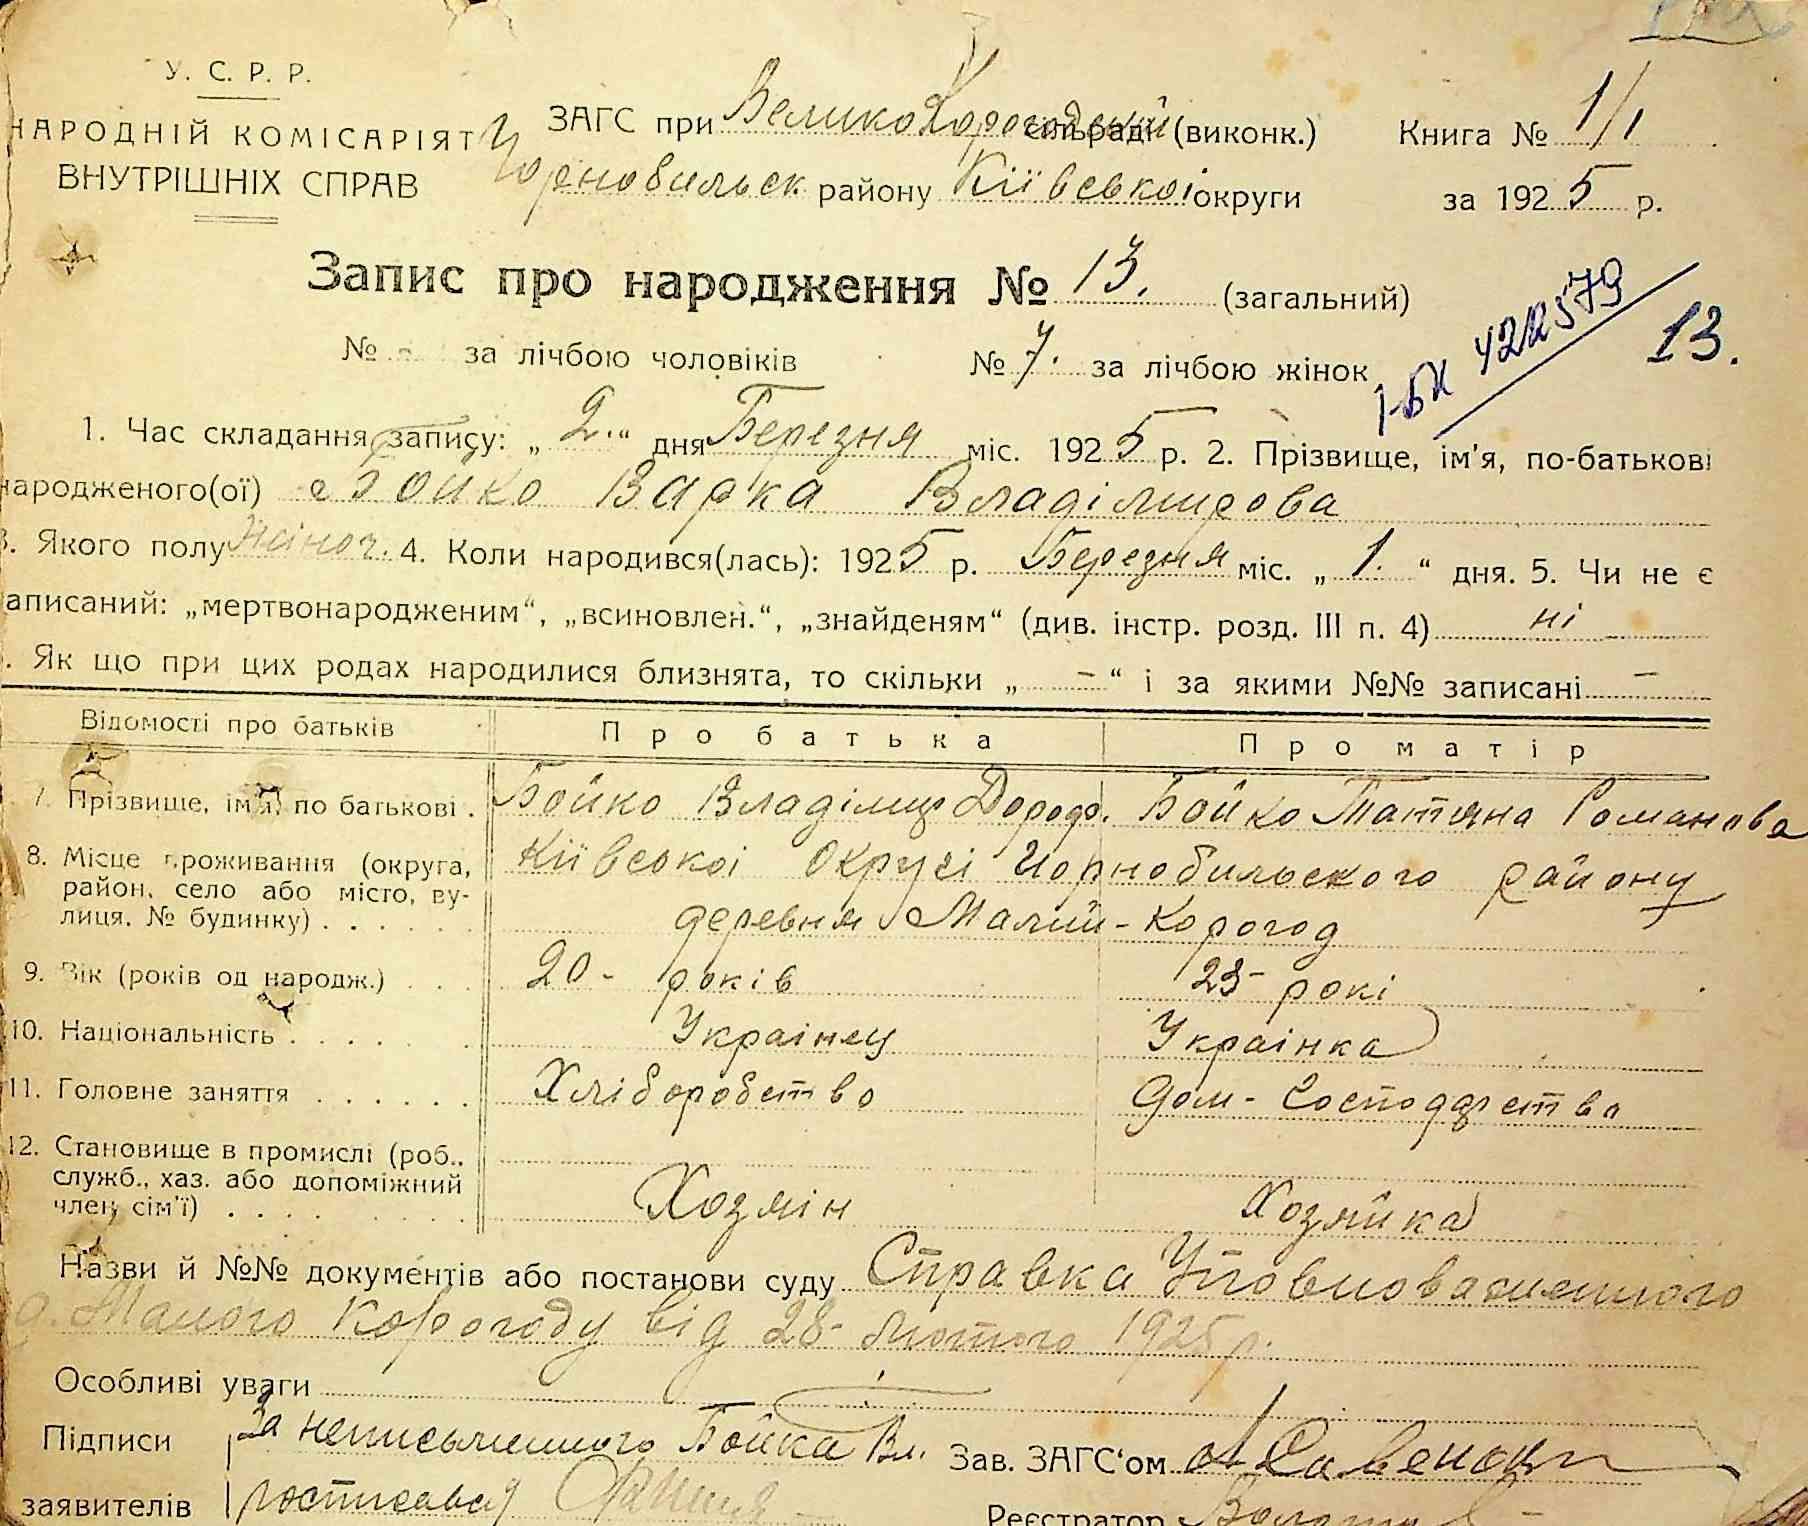 У. С. Р. Р.
НАРОДНІЙ КОМІСАРІЯТ
ВНУТРІШНІХ СПРАВ
ЗАГС при ВеликоКорогодській сільраді (виконк.) Книга № 1/1
Чорнобильськ району Кіївськоі округи за 1925 р.
Запис про народження № 13. (загальний)
№ - за лічбою чоловіків № 7. за лічбою жінок
1-БК 422579
13.
1. Час складання запису: „2.“ дня Березня міс. 1925 р. 2. Прізвище, ім'я, по-батькові
народженого(ої) Бойко Варка Владімирова
3. Якого полу жіноч. 4. Коли народився(лась): 1925 р. Березня міс. „1.“ дня. 5. Чи не є
записаний: „мертвонародженим“, „всиновлен.“, „знайденям“ (див. інстр. розд. III п. 4) ні
. Як що при цих родах народилися близнята, то скільки „ - “ і за якими №№ записані -
Відомості про батьків Про батька Про матір
7. Прізвище, ім'я, по батькові . Бойко Владімир Дороф. Бойко Татяна Романова
8. Місце проживання (округа, район, село або місто, вулиця, № будинку) . . . . . . Кіївськоі Округі Чорнобильского району
деревня Малий-Корогод
9. Вік (років од народж.) . . . 20- років 23- рокі
10. Національність . . . . . . Украінец Украінка
11. Головне заняття . . . . . . Хліборобство дом- Господарство
12. Становище в промислі (роб., служб., хаз. або допоміжний член сім'ї) . . . . . . Хозяін Хозяйка
Назви й №№ документів або постанови суду Справка Уповноваженного
д. Малого Корогоду від 28- лютого 1925 р.
Особливі уваги
Підписи За неписьменного Бойка Вл. Зав. ЗАГС'ом
заявителів росписався Реєстратор